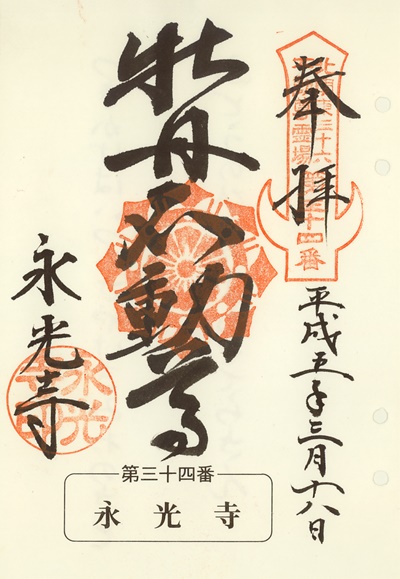 奉拝
三十六
霊場
十四番
平成五年三月十八日
牡丹不動尊
永光寺
永光
第三十四番
永光寺